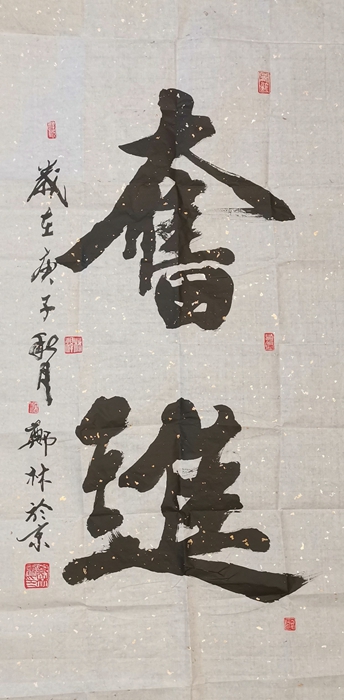 奮進
歲在庚子秋月
鄭林於京